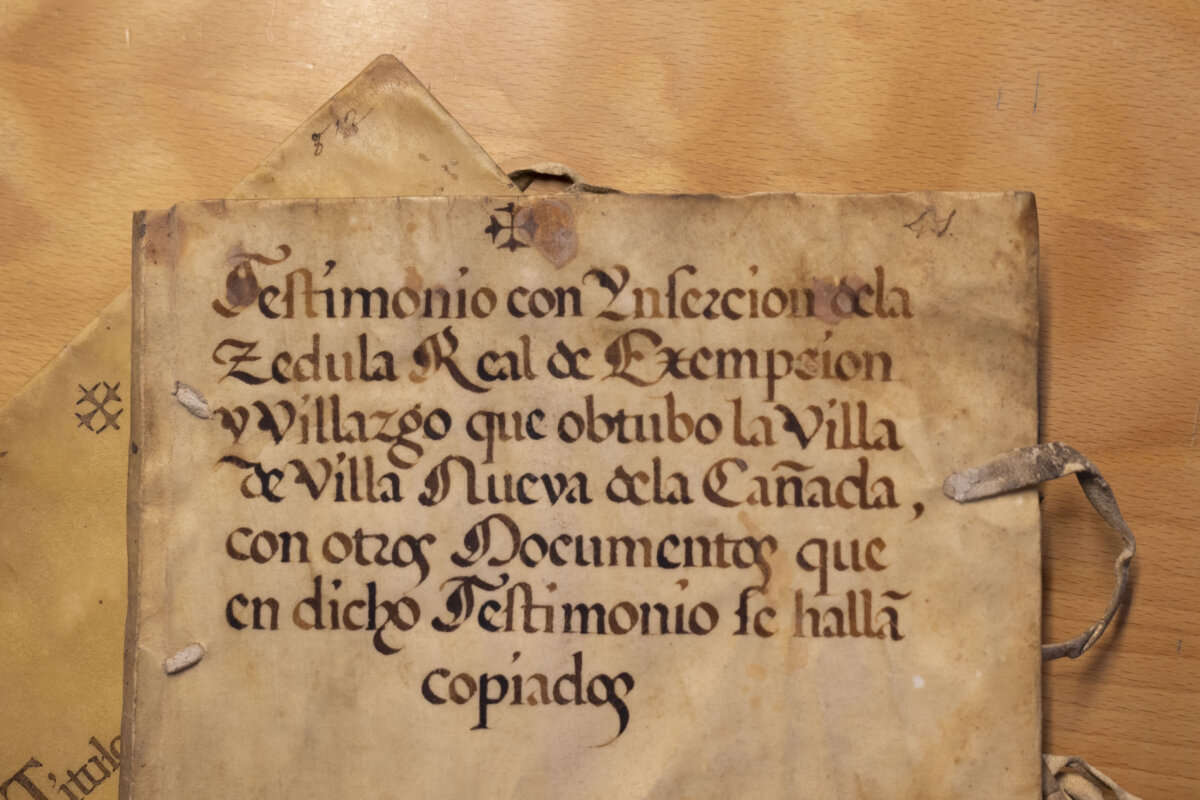 Testimonio con Ynsercion dela
Zedula Real de Exempsion
y Villazgo que obtubo la Villa
de Villa Nueva dela Cañada,
con otros Documentos que
en dicho Testimonio se hallā
copiados
Titulo